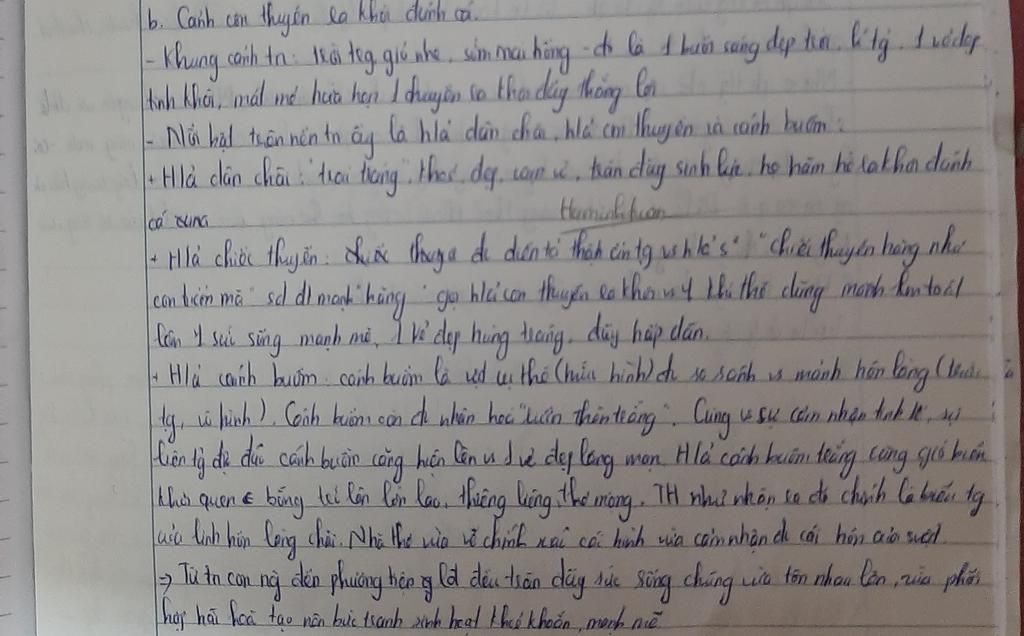 b. Cảnh con thuyền ra khơi đánh cá.
- Khung cảnh tn: trời trg gió nhẹ, sớm mai hồng - đó là 1 buổi sáng đẹp trời, lí tg, 1 vẻ đẹp
tinh khôi, mát mẻ hứa hẹn 1 chuyến ra khơi đầy thắng lợi
- Nổi bật trên nền tn ấy là h/ả dân chài, h/ả con thuyền và cánh buồm:
+ H/ả dân chài: "trai tráng" khoẻ, đẹp, vạm vỡ, tràn đầy sinh lực, họ hăm hở ra khơi đánh
cá
+ H/ả chiếc thuyền: đc diễn tả thật ấn tg vs "chiếc thuyền hăng như
con tuấn mã" sd đt mạnh "hăng" gợi h/ả con thuyền ra khơi vs 1 khí thế dũng mãnh làm toát
lên 1 sức sống mạnh mẽ, 1 vẻ đẹp hùng tráng, đầy hấp dẫn.
+ H/ả cánh buồm: cánh buồm là vật cụ thể (hữu hình) đc so sánh vs mảnh hồn làng (
tg, vô hình). Cánh buồm còn đc nhân hoá "rướn thân trắng". Cùng vs sự cảm nhận tinh tế, sự
liên tg độc đáo cánh buồm càng hiện lên vs 1 vẻ đẹp lãng mạn. H/ả cánh buồm trắng căng gió biển
khơi quen bỗng trở lên lớn lao, thiêng liêng, thơ mộng. TH như nhận ra đó chính là biểu tg
của linh hồn làng chài. Nhà thơ vừa vẽ chính xác cái hình vừa cảm nhận đc cái hồn của svật.
=> Từ tn con ng đến phương tiện lđ đều tràn đầy sức sống chúng vừa tôn nhau lên, vừa phối
hợp hài hoà tạo nên bức tranh sinh hoạt khoẻ khoắn, mạnh mẽ